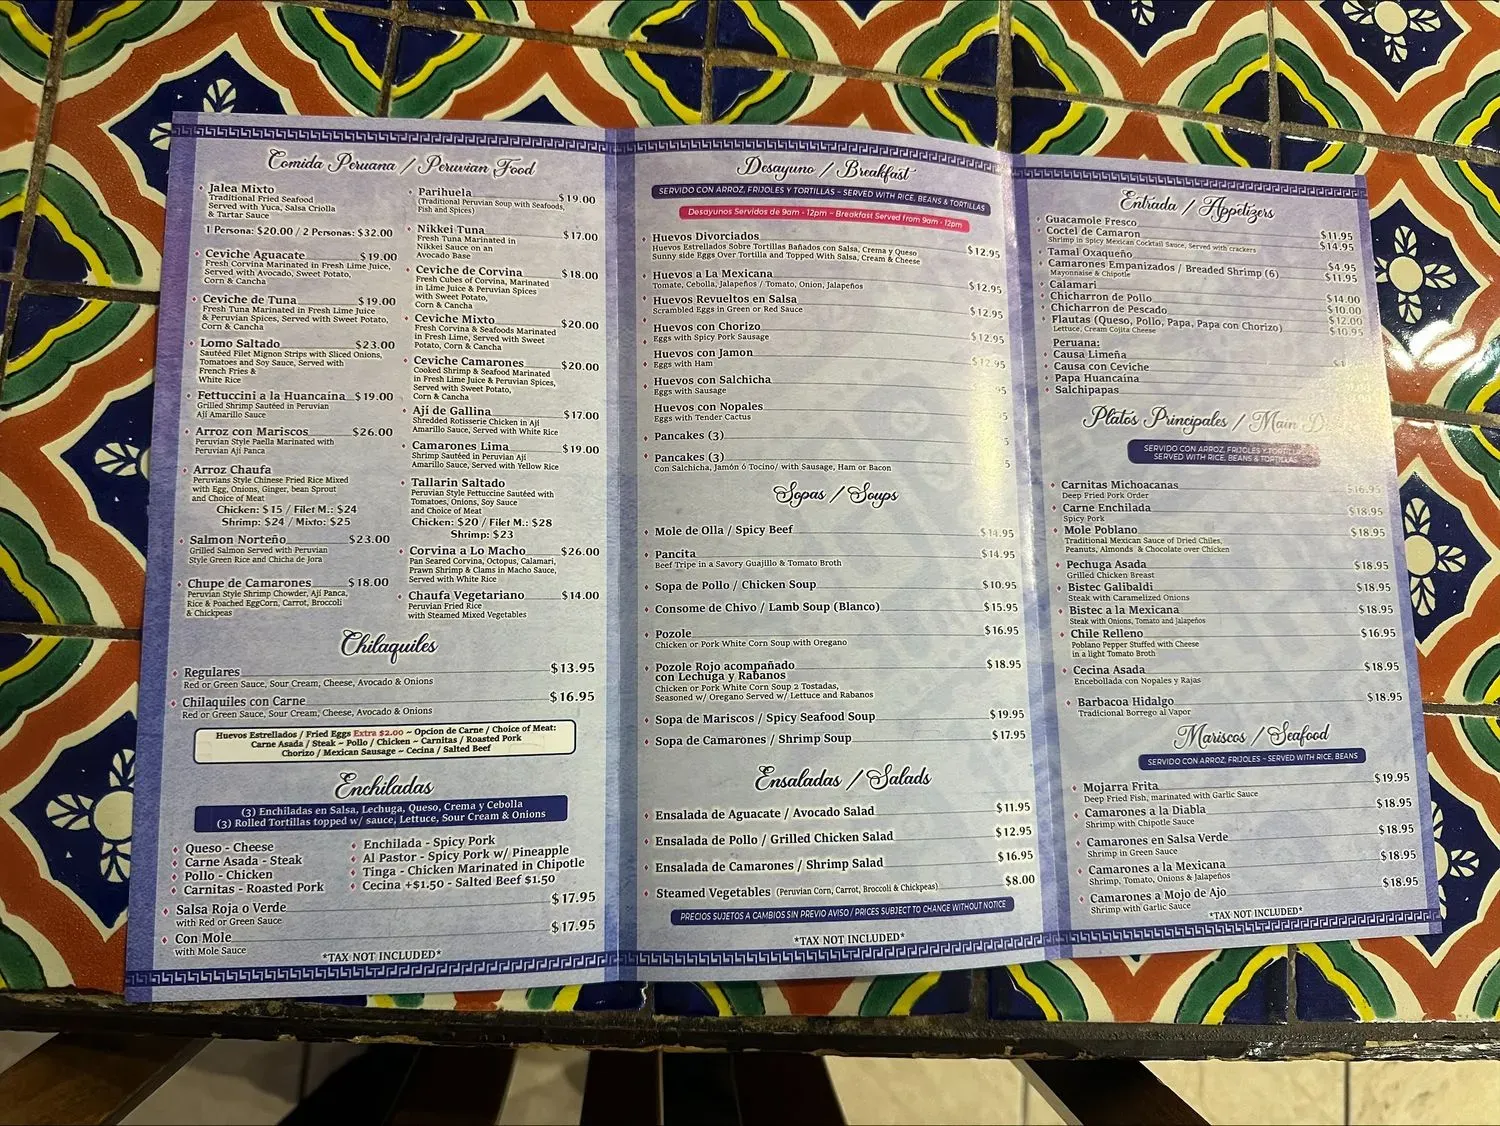 Comida Peruana / Peruvian Food
Jalea Mixto
Traditional Fried Seafood
Served with Yuca, Salsa Criolla
& Tartar Sauce
1 Persona: $20.00 / 2 Personas: $32.00
Ceviche Aguacate $19.00
Fresh Corvina Marinated in Fresh Lime Juice,
Served with Avocado, Sweet Potato,
Corn & Cancha
Ceviche de Tuna $19.00
Fresh Tuna Marinated in Fresh Lime Juice
& Peruvian Spices, Served with Sweet Potato,
Corn & Cancha
Lomo Saltado $23.00
Sautéed Filet Mignon Strips with Sliced Onions,
Tomatoes and Soy Sauce, Served with
French Fries &
White Rice
Fettuccini a la Huancaína $19.00
Grilled Shrimp Sautéed in Peruvian
Ají Amarillo Sauce
Arroz con Mariscos $26.00
Peruvian Style Paella Marinated with
Peruvian Ají Panca
Arroz Chaufa
Peruvians Style Chinese Fried Rice Mixed
with Egg, Onions, Ginger, bean Sprout
and Choice of Meat
Chicken: $15 / Filet M.: $24
Shrimp: $24 / Mixto: $25
Salmon Norteño $23.00
Grilled Salmon Served with Peruvian
Style Green Rice and Chicha de Jora
Chupe de Camarones $18.00
Peruvian Style Shrimp Chowder, Ají Panca,
Rice & Poached EggCorn, Carrot, Broccoli
& Chickpeas
Parihuela $19.00
(Traditional Peruvian Soup with Seafoods,
Fish and Spices)
Nikkei Tuna $17.00
Fresh Tuna Marinated in
Nikkei Sauce on an
Avocado Base
Ceviche de Corvina $18.00
Fresh Cubes of Corvina, Marinated
in Lime Juice & Peruvian Spices
with Sweet Potato,
Corn & Cancha
Ceviche Mixto $20.00
Fresh Corvina & Seafoods Marinated
in Fresh Lime, Served with Sweet
Potato, Corn & Cancha
Ceviche Camarones $20.00
Cooked Shrimp & Seafood Marinated
in Fresh Lime Juice & Peruvian Spices,
Served with Sweet Potato,
Corn & Cancha
Ají de Gallina $17.00
Shredded Rotisserie Chicken in Ají
Amarillo Sauce, Served with White Rice
Camarones Lima $19.00
Shrimp Sautéed in Peruvian Ají
Amarillo Sauce, Served with Yellow Rice
Tallarin Saltado
Peruvian Style Fettuccine Sautéed with
Tomatoes, Onions, Soy Sauce
and Choice of Meat
Chicken: $20 / Filet M.: $28
Shrimp: $23
Corvina a Lo Macho $26.00
Pan Seared Corvina, Octopus, Calamari,
Prawn Shrimp & Clams in Macho Sauce,
Served with White Rice
Chaufa Vegetariano $14.00
Peruvian Fried Rice
with Steamed Mixed Vegetables
Chilaquiles
Regulares $13.95
Red or Green Sauce, Sour Cream, Cheese, Avocado & Onions
Chilaquiles con Carne $16.95
Red or Green Sauce, Sour Cream, Cheese, Avocado & Onions
Huevos Estrellados / Fried Eggs Extra $2.00 ~ Opcion de Carne / Choice of Meat:
Carne Asada / Steak ~ Pollo / Chicken ~ Carnitas / Roasted Pork
Chorizo / Mexican Sausage ~ Cecina / Salted Beef
Enchiladas
(3) Enchiladas en Salsa, Lechuga, Queso, Crema y Cebolla
(3) Rolled Tortillas topped w/ sauce, Lettuce, Sour Cream & Onions
Queso - Cheese
Carne Asada - Steak
Pollo - Chicken
Carnitas - Roasted Pork
Enchilada - Spicy Pork
Al Pastor - Spicy Pork w/ Pineapple
Tinga - Chicken Marinated in Chipotle
Cecina +$1.50 - Salted Beef $1.50
Salsa Roja o Verde $17.95
with Red or Green Sauce
Con Mole $17.95
with Mole Sauce
*TAX NOT INCLUDED*
Desayuno / Breakfast
SERVIDO CON ARROZ, FRIJOLES Y TORTILLAS ~ SERVED WITH RICE, BEANS & TORTILLAS
Desayunos Servidos de 9am - 12pm ~ Breakfast Served from 9am - 12pm
Huevos Divorciados $12.95
Huevos Estrellados Sobre Tortillas Bañados con Salsa, Crema y Queso
Sunny side Eggs Over Tortilla and Topped With Salsa, Cream & Cheese
Huevos a La Mexicana $12.95
Tomate, Cebolla, Jalapeños / Tomato, Onion, Jalapeños
Huevos Revueltos en Salsa $12.95
Scrambled Eggs in Green or Red Sauce
Huevos con Chorizo $12.95
Eggs with Spicy Pork Sausage
Huevos con Jamon $12.95
Eggs with Ham
Huevos con Salchicha
Eggs with Sausage
Huevos con Nopales
Eggs with Tender Cactus
Pancakes (3)
Pancakes (3)
Con Salchicha, Jamón ó Tocino/ with Sausage, Ham or Bacon
Sopas / Soups
Mole de Olla / Spicy Beef $14.95
Pancita $14.95
Beef Tripe in a Savory Guajillo & Tomato Broth
Sopa de Pollo / Chicken Soup $10.95
Consome de Chivo / Lamb Soup (Blanco) $15.95
Pozole $16.95
Chicken or Pork White Corn Soup with Oregano
Pozole Rojo acompañado $18.95
con Lechuga y Rabanos
Chicken or Pork White Corn Soup 2 Tostadas,
Seasoned w/ Oregano Served w/ Lettuce and Rabanos
Sopa de Mariscos / Spicy Seafood Soup $19.95
Sopa de Camarones / Shrimp Soup $17.95
Ensaladas / Salads
Ensalada de Aguacate / Avocado Salad $11.95
Ensalada de Pollo / Grilled Chicken Salad $12.95
Ensalada de Camarones / Shrimp Salad $16.95
Steamed Vegetables (Peruvian Corn, Carrot, Broccoli & Chickpeas) $8.00
PRECIOS SUJETOS A CAMBIOS SIN PREVIO AVISO / PRICES SUBJECT TO CHANGE WITHOUT NOTICE
*TAX NOT INCLUDED*
Entrada / Appetizers
Guacamole Fresco $11.95
Coctel de Camaron $14.95
Shrimp in Spicy Mexican Cocktail Sauce, Served with crackers
Tamal Oaxaqueño $4.95
Camarones Empanizados / Breaded Shrimp (6) $11.95
Mayonnaise & Chipotle
Calamari $14.00
Chicharron de Pollo $10.00
Chicharron de Pescado $12.00
Flautas (Queso, Pollo, Papa, Papa con Chorizo) $10.95
Lettuce, Cream Cojita Cheese
Peruana:
Causa Limeña
Causa con Ceviche
Papa Huancaína
Salchipapas
Platos Principales / Main
SERVIDO CON ARROZ, FRIJOLES Y TORTILLAS
SERVED WITH RICE, BEANS & TORTILLAS
Carnitas Michoacanas $16.95
Deep Fried Pork Order
Carne Enchilada $18.95
Spicy Pork
Mole Poblano $18.95
Traditional Mexican Sauce of Dried Chiles,
Peanuts, Almonds & Chocolate over Chicken
Pechuga Asada $18.95
Grilled Chicken Breast
Bistec Galibaldi $18.95
Steak with Caramelized Onions
Bistec a la Mexicana $18.95
Steak with Onions, Tomato and Jalapeños
Chile Relleno $16.95
Poblano Pepper Stuffed with Cheese
in a light Tomato Broth
Cecina Asada $18.95
Encebollada con Nopales y Rajas
Barbacoa Hidalgo $18.95
Tradicional Borrego al Vapor
Mariscos / Seafood
SERVIDO CON ARROZ, FRIJOLES ~ SERVED WITH RICE, BEANS
Mojarra Frita $19.95
Deep Fried Fish, marinated with Garlic Sauce
Camarones a la Diabla $18.95
Shrimp with Chipotle Sauce
Camarones en Salsa Verde $18.95
Shrimp in Green Sauce
Camarones a la Mexicana $18.95
Shrimp, Tomato, Onions & Jalapeños
Camarones a Mojo de Ajo $18.95
Shrimp with Garlic Sauce
*TAX NOT INCLUDED*